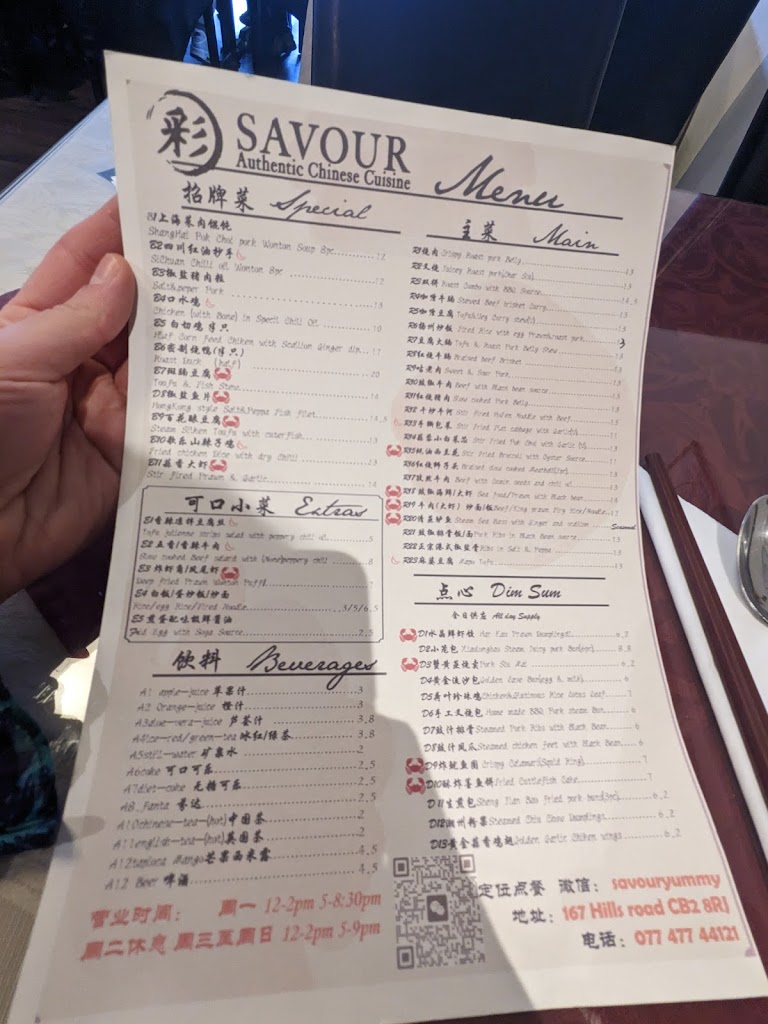 彩 SAVOUR
Authentic Chinese Cuisine
Menu
招牌菜 Special
B1上海菜肉馄饨
ShangHai Pak Choi pork Wonton Soup 8pc 12
B2四川红油抄手
SiChuan Chilli oil Wonton 8pc 12
B3椒盐猪肉粒
Salt&peper Pork 13
B4口水鸡
Chicken (with bone) in Specil Chili Oil 10
B5白切鸡半只
Half Corn Feed Chiken with Scallion Ginger dip 17
B6密制烧鸭(半只)
Roast Duck (half) 20
B7班腩豆腐
Toufu & Fish Stew 16
D8椒盐鱼片
HongKong style Salt&Peppe Fish filet 14.5
B9百花酿豆腐
Steam Silken Toufu with cuterfish 13
B10歌乐山辣子鸡
Fried chicken Dice with dry Chili 13
B11蒜香大虾
Stir fried Prawn & Garlic 14
可口小菜 Extras
E1香辣凉拌豆腐丝
Tofu julienne strips salad with peppery oil 5
E2五香/香辣牛肉
Slow cooked Beef salard with (None)peppery chili 8
E3炸虾角/凤尾虾
Deep fried Prawn Wonton Puff/4 7
E4白饭/蛋炒饭/炒面
Rice/egg Rice/Fired Noodle 3/5/6.5
E5煎蛋配味极鲜酱油
Frid Egg with Soya Saurce 2.5
饮料 Beverages
A1 apple-juice 苹果汁 3
A2 Orange-juice 橙汁 3
A3aloe-vera-juice 芦荟汁 3.8
A4ice-red/green-tea 冰红/绿茶 3.8
A5still-water 矿泉水 2
A6cake 可口可乐 2.5
A7diet-cake 无糖可乐 2.5
A8. Fanta 芬达 2.5
A10chinese-tea-(hot)中国茶 2
A11english-tea-(hot)英国茶 2
A12tapioca Mango芒果西米露 4.5
A12 Beer 啤酒 4.5
营业时间： 周一 12-2pm 5-8:30pm
周二休息 周三至周日 12-2pm 5-9pm
主菜 Main
R1烧肉 Crispy Roast pork Belly 13
R2叉烧 Juicey Roast pork(Char Siu) 13
R3双拼 Roast Combo with BBQ Saurce 14.5
R4咖喱牛腩 Stewed Beef Brisket Curry 13
R5咖喱豆腐 Tofu&Veg Curry stew 13
R6扬州炒饭 Fired Rice with egg Prawn&roast pork 13
R7豆腐火腩 Tofu & Roast Pork Belly Stew 13
R8红烧牛腩 Braised Beef Brisket 13
R9咕老肉 Sweet & Sour Pork 13
R10豉椒牛肉 Beef with Black bean saurce 13
R11红烧猪肉 Slow cooked Pork Belly 13
R12干炒牛河 Stir fried Hofen Noodle with Beef 13
R13手撕包菜 Stir fried Flat cabbage with Garlic 11
R14蒜蓉小白菜苗 Stir fried Pak Choi with Garlic 11
R15蚝油西兰花 Stir Fried Broccoli with Oyster Saurce 11
R16红烧狮子头 Braised Slow cooked Meatball 13
R17孜然牛肉 Beef with Cumin seeds and chili 13
R18豉椒海鲜/大虾 Sea food/Prawn with Black bean 14
R19牛肉(大虾)炒面/饭Beef/King prawn Stry Rice/Noodle 12
R20清蒸鲈鱼 Steam Sea Bass with Ginger and scallion Seasonal
R21豉椒排骨饭/面Pork Ribs in Black Bean saurce 13
R22正宗港式椒盐骨Ribs in Salt & Peppe 13
R23麻婆豆腐 Mapo Tofu 13
点心 Dim Sum
全日供应 All day Supply
D1水晶鲜虾饺 Har Kau Prawn Dumplings 6.2
D2小笼包 Xiaolongbao Steam Juicy pork Bun 8.8
D3蟹黄蒸烧卖Pork Siu Mai 6.2
D4黄金流沙包Golden Lava Bun(egg & milk) 6
D5荷叶珍珠鸡Chicken&Glutinous Rice Lotus Leaf 7
D6手工叉烧包 Home made BBQ Pork steam Bun 6
D7豉汁排骨Steamed Pork Ribs with Black Bean 6
D8豉汁凤爪Steamed chicken feet with Black Bean 6
D9炸鱿鱼圈 Crispy Calamari(Squid Ring) 7
D10酥炸墨鱼饼Fried Cuttlefish Cake 7
D11生煎包Sheng Jian Bao fried pork bun 6.2
D12潮州粉果Steamed Chiu Chow Dumplings 6.2
D13黄金蒜香鸡翅Golden Garlic Chiken wings 6.2
定位点餐 微信： savouryummy
地址：167 Hills road CB2 8RJ
电话：077 477 44121